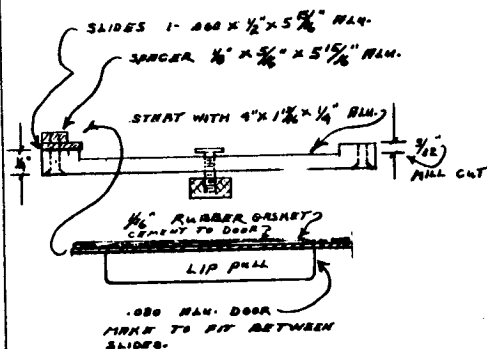 SLIDES 1- .080 x 1/2" x 5 15/16" ALU.
SPACER 1/8" x 5/16" x 5 15/16" ALU.
START WITH 4" x 1 13/16 x 1/4" ALU.
1/4"
3/32"
MILL CUT
1/16" RUBBER GASKET
CEMENT TO DOOR
LIP PULL
.080 ALU. DOOR
MAKE TO FIT BETWEEN
SLIDES.